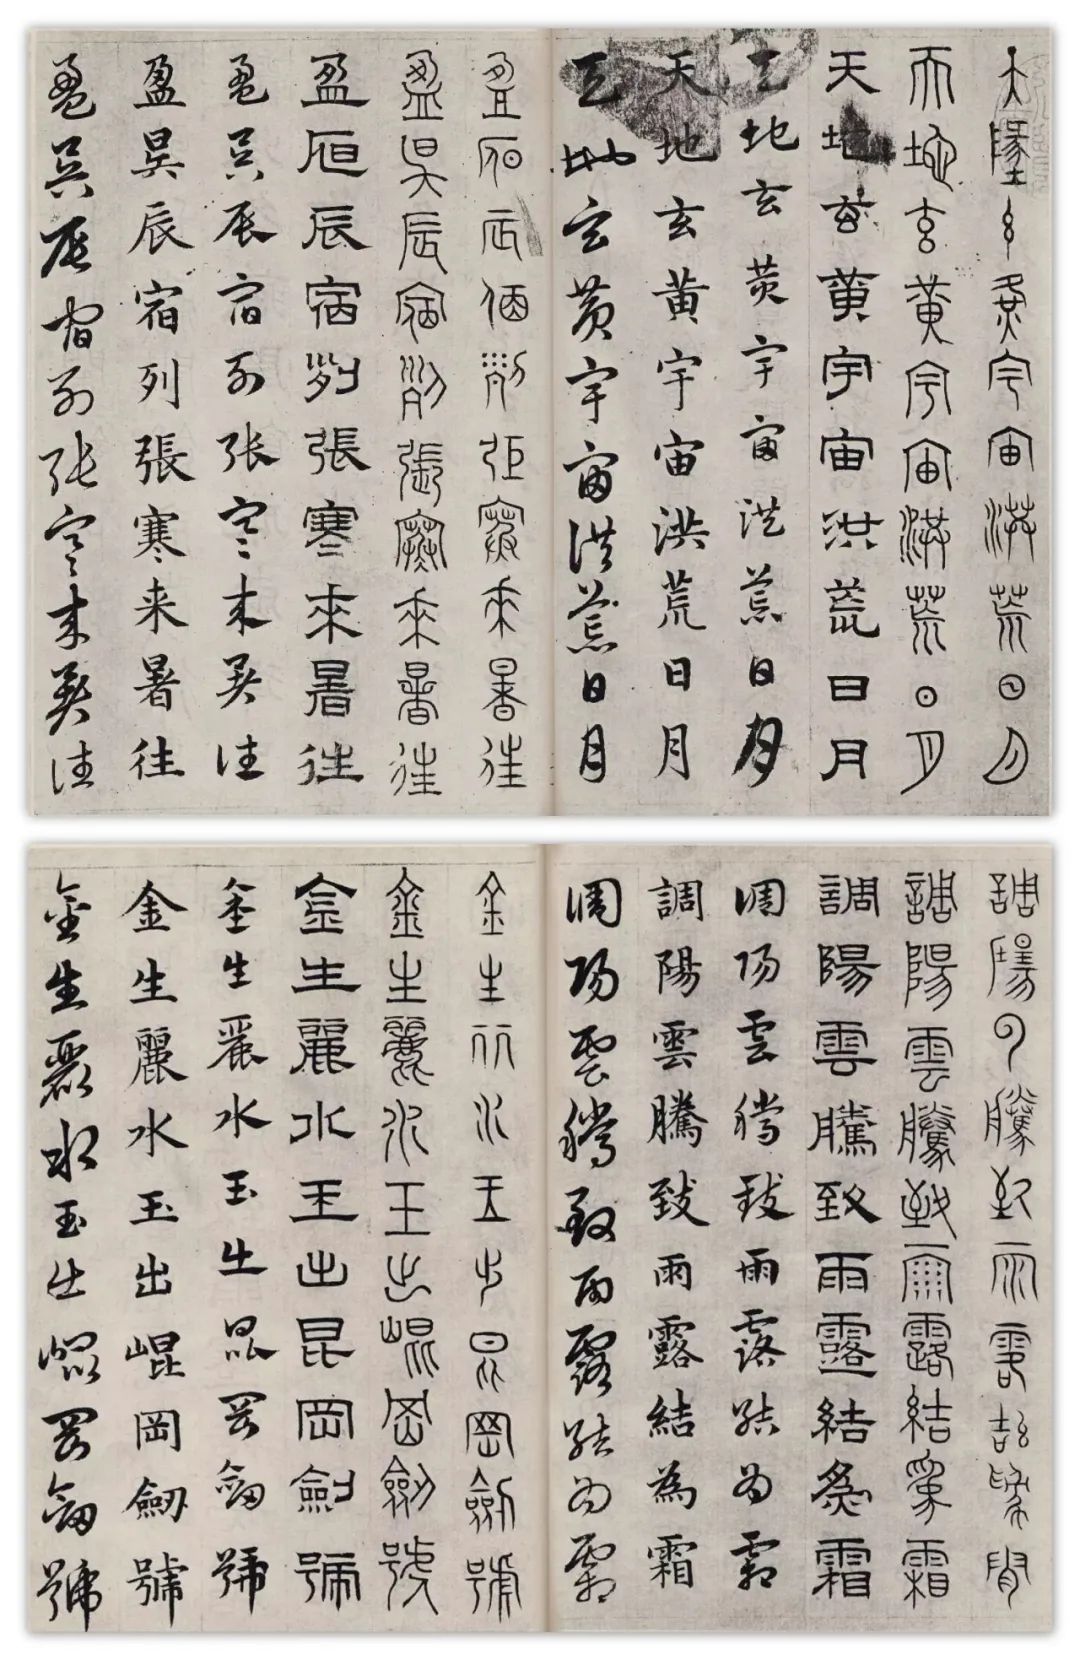 天地玄黃宇宙洪荒日月
天地玄黃宇宙洪荒日月
天地玄黃宇宙洪荒日月
天地玄黃宇宙洪荒日月
天地玄黃宇宙洪荒日月
天地玄黃宇宙洪荒日月
盈昃辰宿列張寒來暑往
盈昃辰宿列張寒來暑往
盈昃辰宿列張寒來暑往
盈昃辰宿列張寒來暑往
盈昃辰宿列張寒来暑往
盈昃辰宿列張寒來暑往
調陽雲騰致雨露結為霜
調陽雲騰致雨露結為霜
調陽雲騰致雨露結為霜
調陽雲騰致雨露結為霜
調陽雲騰致雨露結為霜
調陽雲騰致雨露結為霜
金生麗水玉出昆岡劍號
金生麗水玉出崐岡劍號
金生麗水玉出昆岡劍號
金生麗水玉出昆岡劒號
金生麗水玉出崐岡劒號
金生麗水玉出崐岡劒號